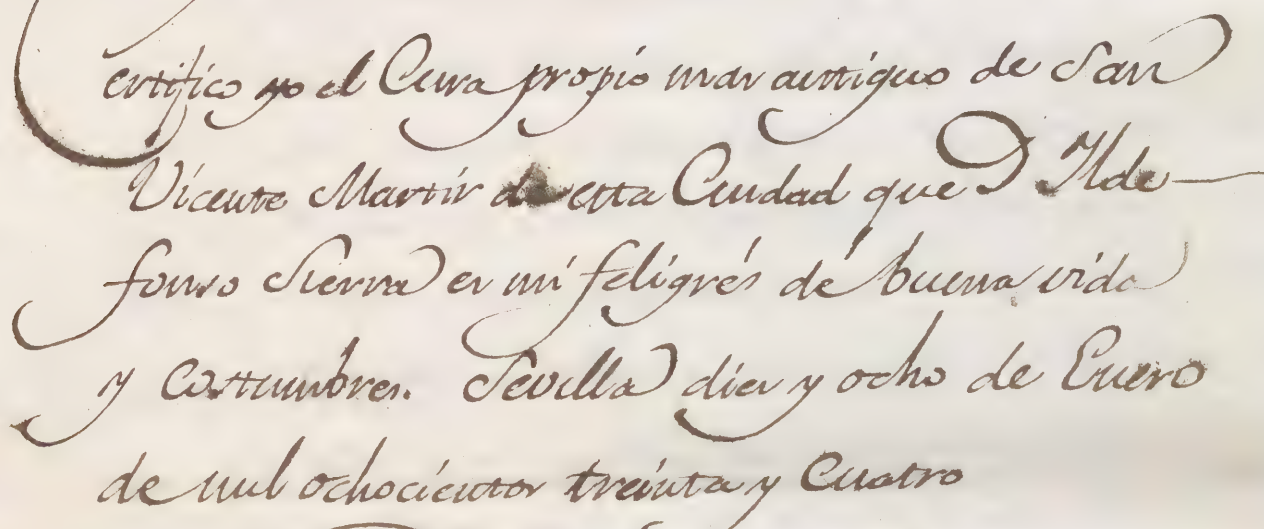 Certifico yo el Cura propio mas antiguo de San
Vicente Martir de esta Ciudad que D Ilde
fonso Sierra es mi feligrés de buena vida
y costumbres. Sevilla dies y ocho de Enero
de mil ochocientos treinta y Cuatro